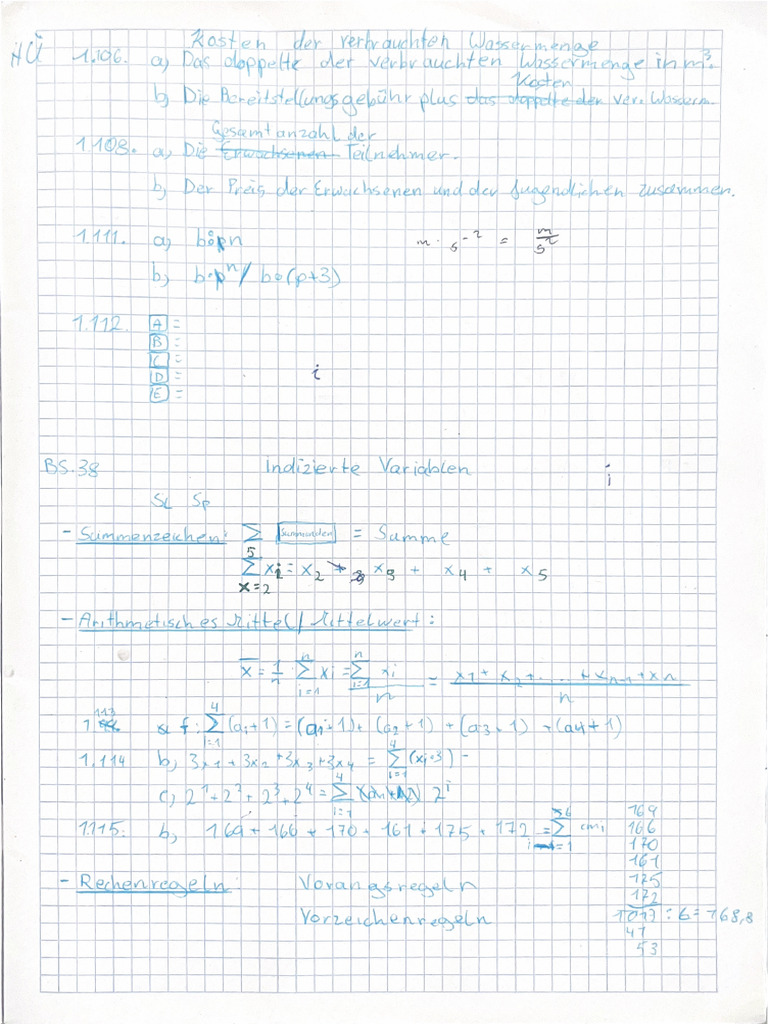 HÜ
Kosten der verbrauchten Wassermenge
1.106. a) Das doppelte der verbrauchten Wassermenge in m³.
Kosten
b) Die Bereitstellungsgebühr plus das doppelte der ver. Wasserm.
Gesamtanzahl der
1.108. a) Die Erwachsenen Teilnehmer.
b) Der Preis der Erwachsenen und der Jugendlichen zusammen.
1.111. a) b·p·n m · s⁻² = m/s²
b) b·pⁿ / b·(p+3)
1.112. A =
B =
C =
D = i
E =
BS.38 Indizierte Variablen i
SL Sp
- Summenzeichen: Σ Summanden = Summe
5
Σ xi = x2 + x3 + x4 + x5
x=2
- Arithmetisches Mittel / Mittelwert:
x̄ = 1/n · Σ(i=1, n) xi = Σ(i=1, n) xi / n = x1 + x2 + .... + xn-1 + xn / n
1.113 f: Σ(i=1, 4) (ai+1) = (a1+1) + (a2+1) + (a3+1) + (a4+1)
1.114 b) 3x1 + 3x2 + 3x3 + 3x4 = Σ(i=1, 4) (xi·3) =
c) 2¹ + 2² + 2³ + 2⁴ = Σ(i=1, 4) 2ⁱ
1.115. b) 169 + 166 + 170 + 161 + 175 + 172 = Σ(i=1, 6) cmi
169
166
170
161
175
172
1013 : 6 = 168,8
41
53
- Rechenregeln: Vorangsregeln
Vorzeichenregeln